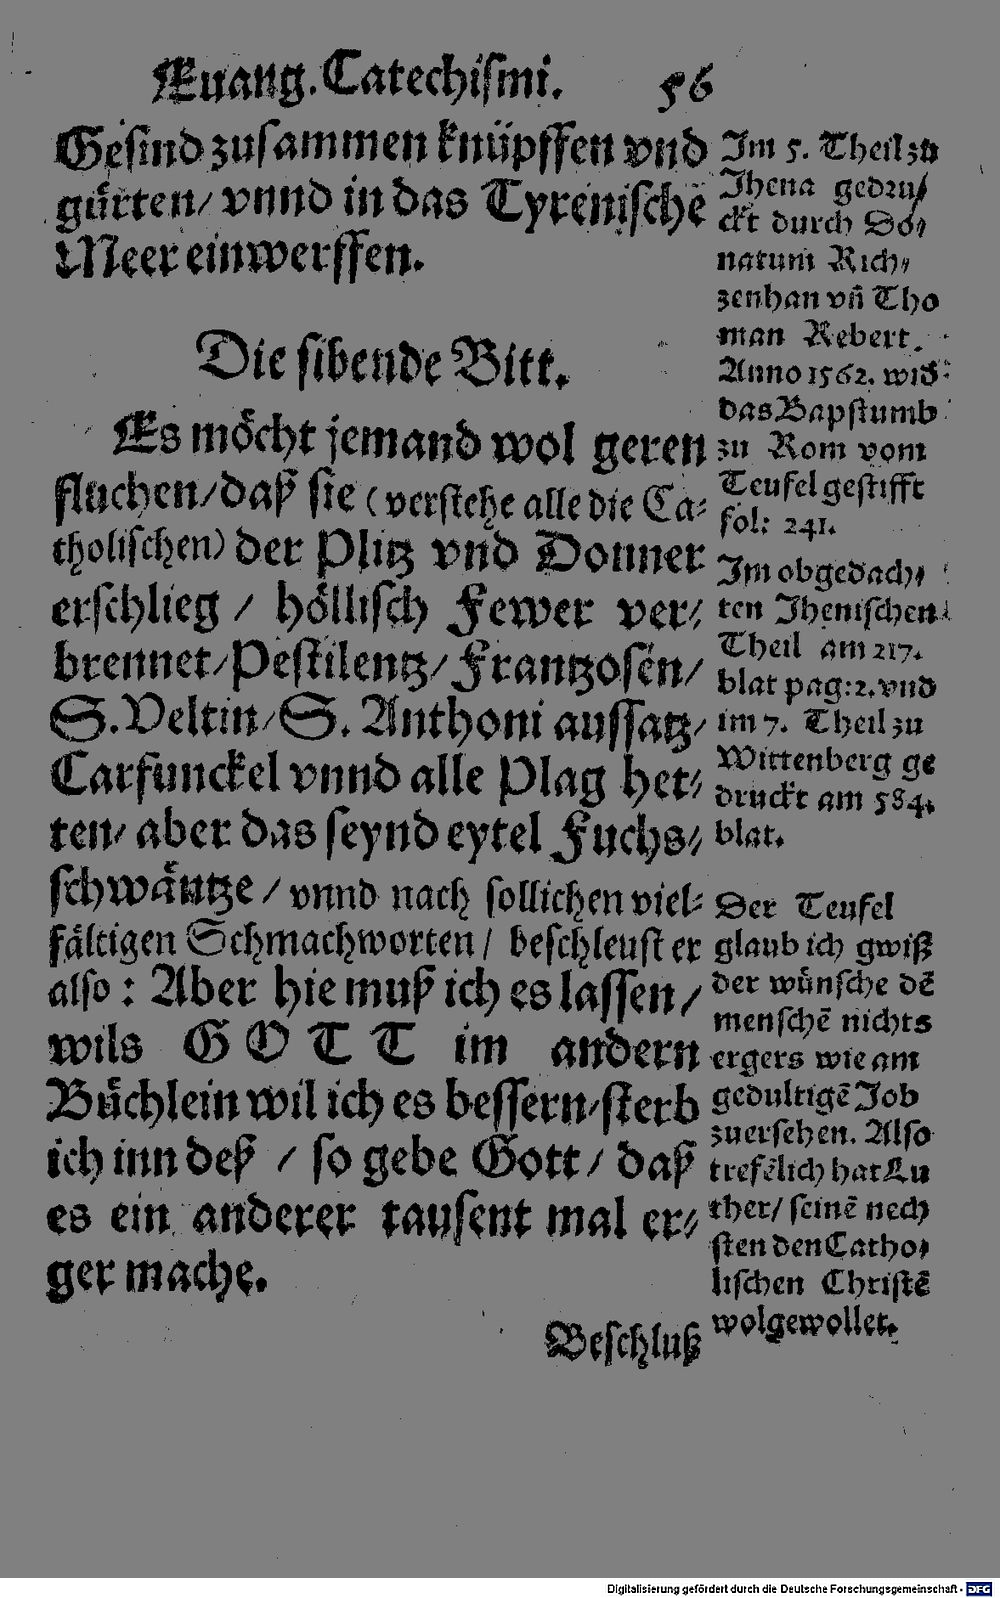 Euang. Catechismi. 56
Gesind zusammen knüpffen vnd
gürten/ vnnd in das Tyrenische
Meer einwerffen.
Die sibende Bitt.
Es möcht jemand wol geren
fluchen/ daß sie (verstehe alle die Ca-
tholischen) der Plitz vnd Donner
erschlieg / höllisch Fewer ver-
brennet/ Pestilentz/ Frantzosen/
S. Veltin/ S. Anthoni aussatz/
Carfunckel vnnd alle Plag het-
ten/ aber das seynd eytel Fuchs-
schwäntze / vnnd nach sollichen viel-
fältigen Schmachworten / beschleust er
also : Aber hie muß ich es lassen/
wils GOTT im andern
Büchlein wil ich es bessern/ sterb
ich inn deß / so gebe Gott/ daß
es ein anderer tausent mal er-
ger mache.
Beschluß
Im 5. Theil zu
Jhena gedru-
ckt durch Do-
natum Rich-
zenhan vñ Tho
man Rebert.
Anno 1562. wid
das Bapstumb
zu Rom vom
Teufel gestifft
fol: 241.
Im obgedach-
ten Jhenischen
Theil am 217.
blat pag: 2. vnd
im 7. Theil zu
Wittenberg ge
druckt am 584.
blat.
Der Teufel
glaub ich gwiß
der wünsche dē
menschē nichts
ergers wie am
gedultigē Job
zuersehen. Also
trefēlich hat Lu
ther/ seinē nech
sten den Catho-
lischen Christē
wolgewollet.
Digitalisierung gefördert durch die Deutsche Forschungsgemeinschaft - DFG